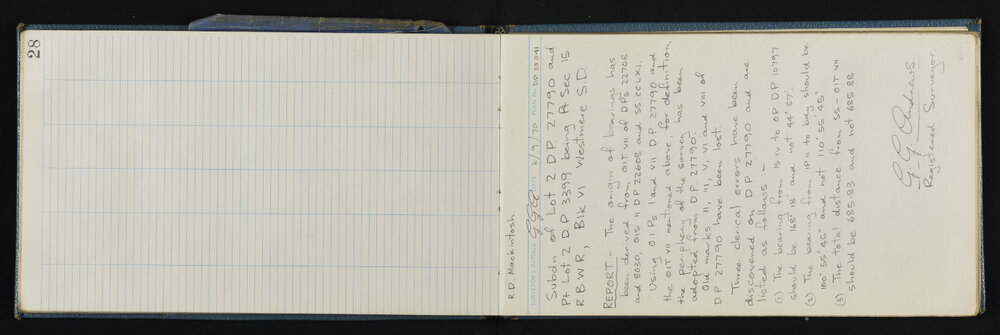 28
R.D. Mackintosh
SURVEYOR'S INITIALS GGA DATE 2/9/70 PLAN No. DP 33041
Subdn of Lot 2 DP 27790 and
Pt Lot 2 D.P. 3399 being Pt Sec 15
R B W R, Blk VI Westmere S.D.
REPORT - The origin of bearings has
been derived from OIT VII of DPs 22708
and 8030, OIS II DP 22608 and SS CCLXI.
Using OIPs I and VII D.P. 27790 and
the OIT VII mentioned above, for definition,
the periphery of the survey has been
adopted from D.P. 27790.
Old marks II, III, V, VI and VIII of
D.P. 27790 have been lost.
Three clerical errors have been
discovered on DP 27790 and are
listed as follows -
(1) The bearing from IS IV to OP D.P. 10797
should be 168° 18' and not 44° 57'.
(2) The bearing from IP II to bdy should be
100° 55' 45" and not 110° 55' 45"
(3) The total distance from SS - OIT VII
should be 685.83 and not 685.88
G.G. Andrews.
Registered Surveyor